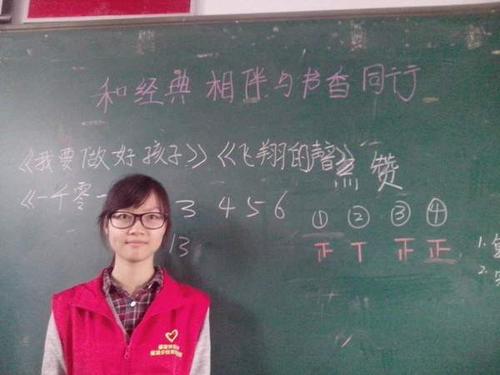 和经典相伴与书香同行
《我要做好孩子》《飞翔的声音》
点赞
《一千零一
3 4 5 6
① ② ③ ④
正 T 正 正
13
1.
2.